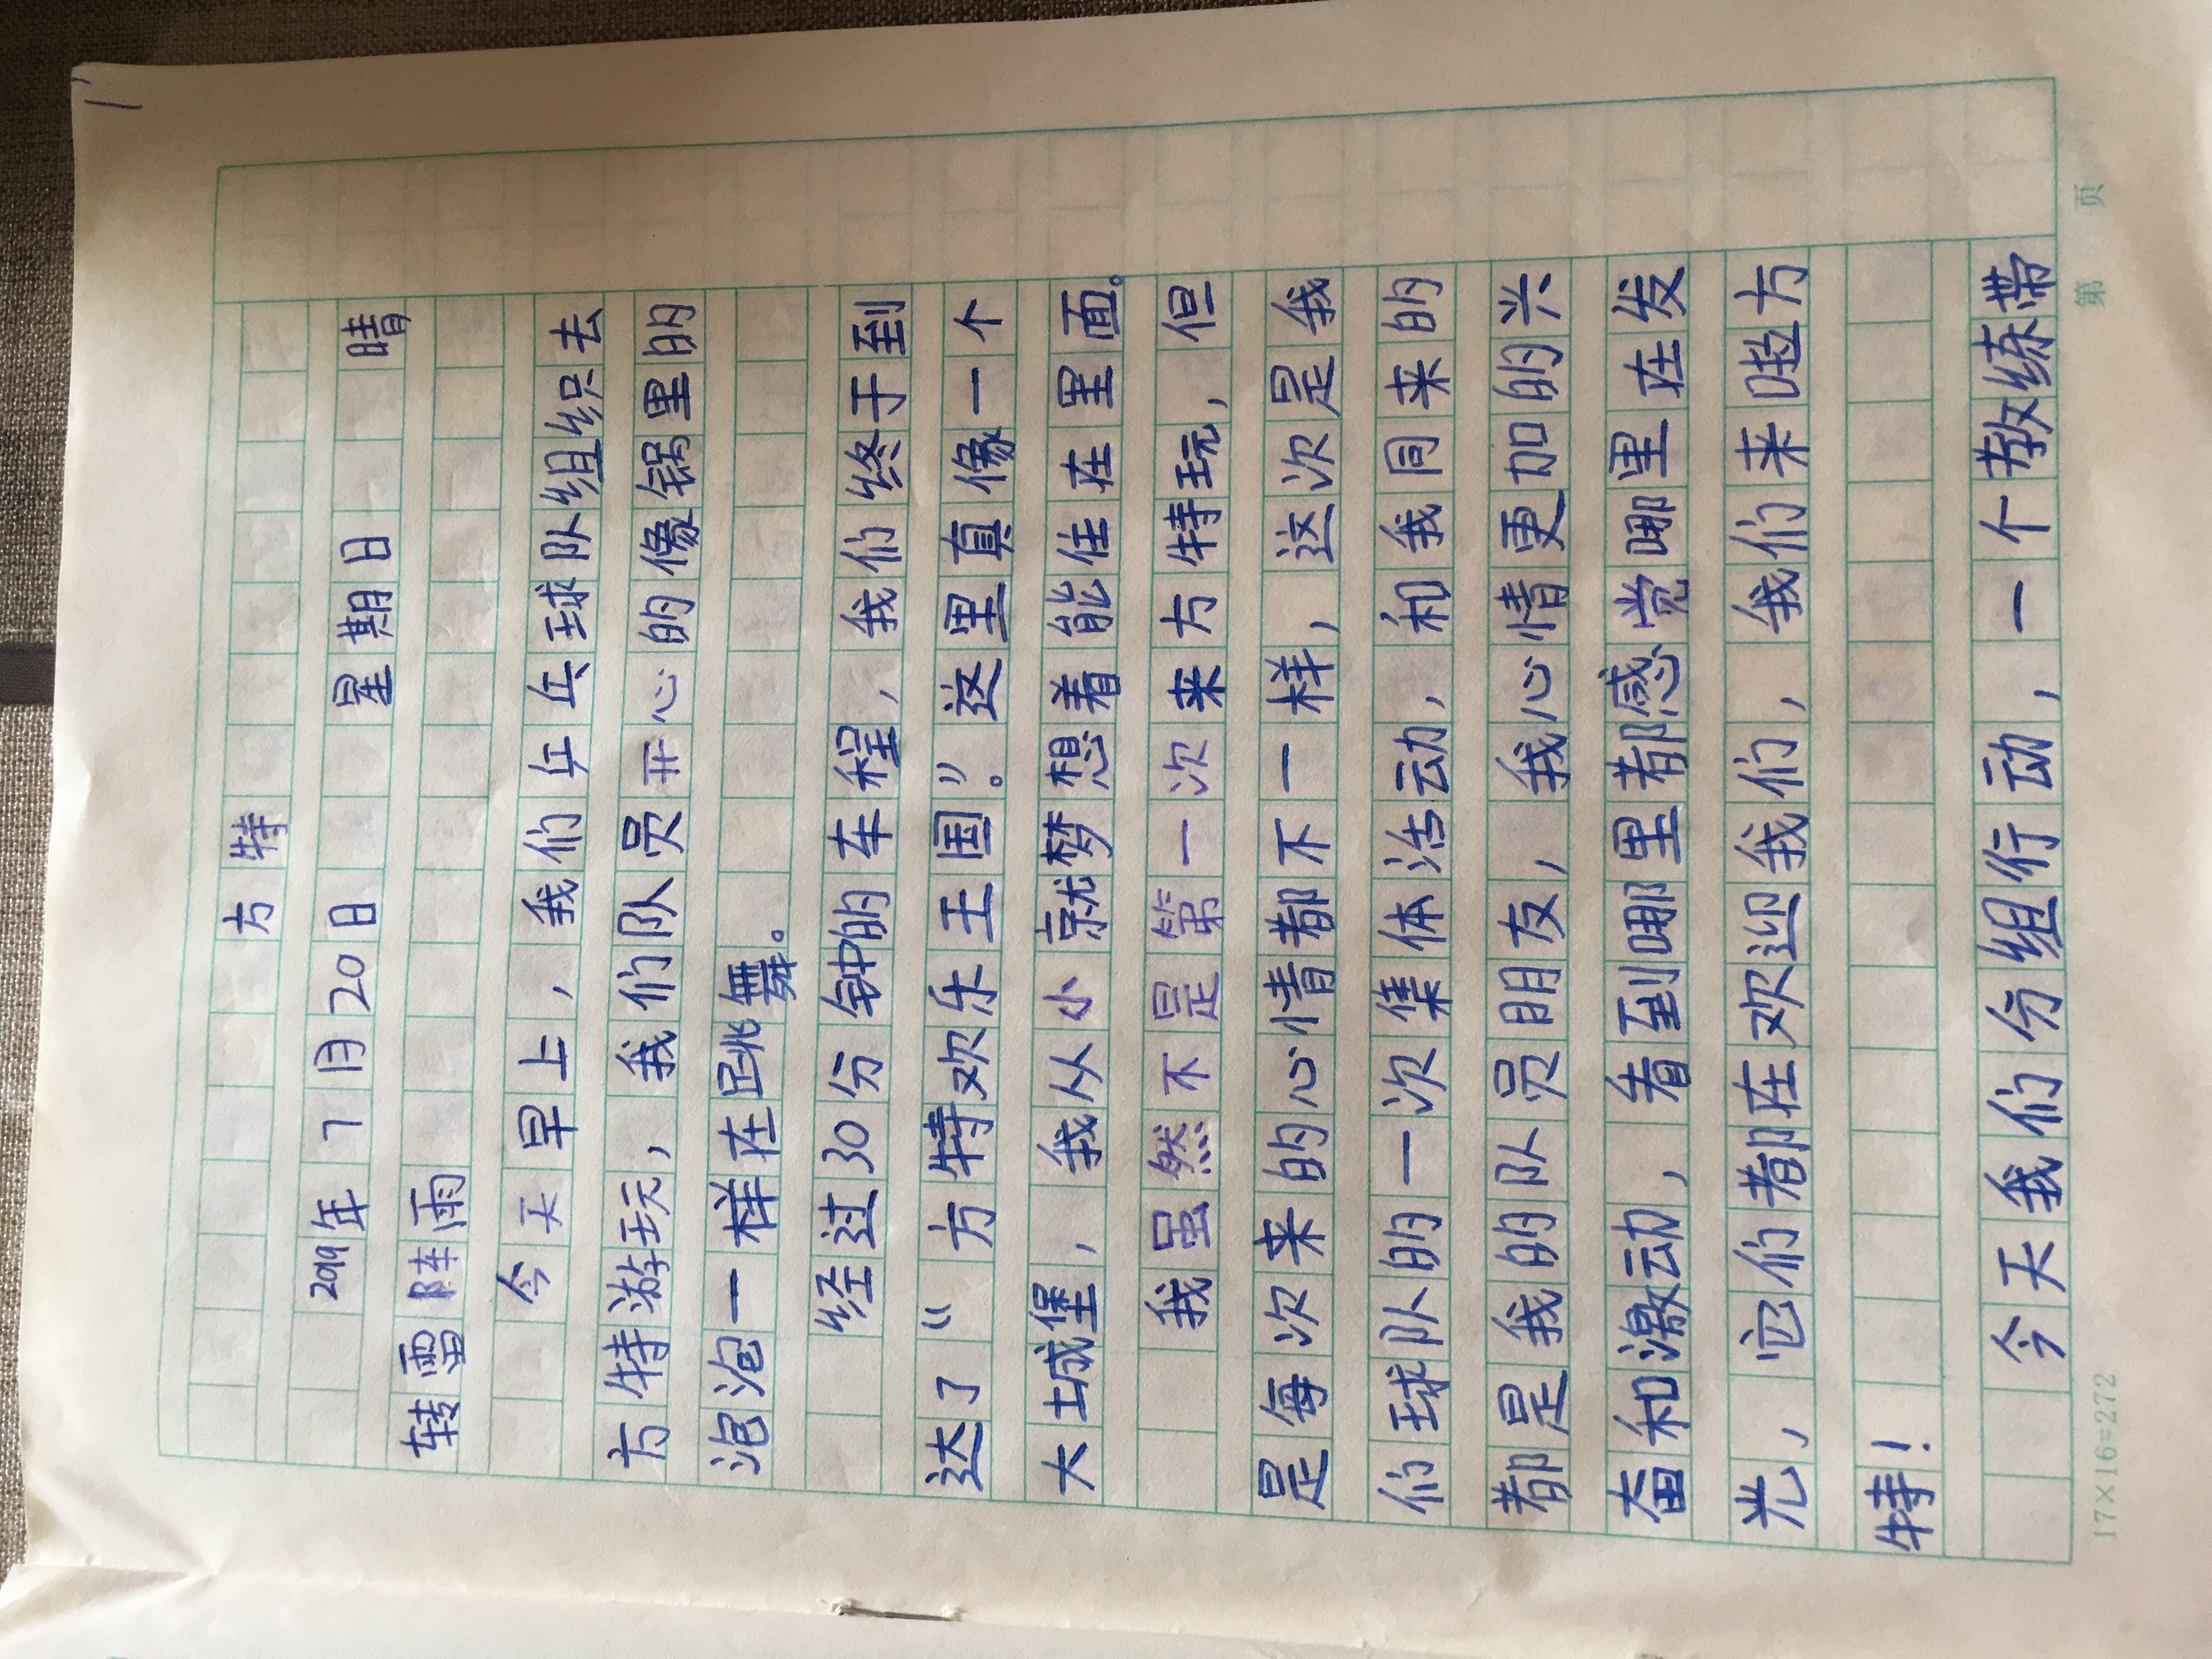 方特
2019年7月20日 星期日 晴
转雷阵雨
今天早上，我们乒乓球队组织去
方特游玩，我们队员开心的像锅里的
泡泡一样在跳舞。
经过30分钟的车程，我们终于到
达了“方特欢乐王国”。这里真像一个
大城堡，我从小就梦想着能住在里面。
我虽然不是第一次来方特玩，但
是每次来的心情都不一样，这次是我
们球队的一次集体活动，和我同来的
都是我的队员朋友，我心情更加的兴
奋和激动，看到哪里都感觉哪里在发
光，它们都在欢迎我们，我们来啦方
特！
今天我们分组行动，一个教练带
17×16=272
第 页